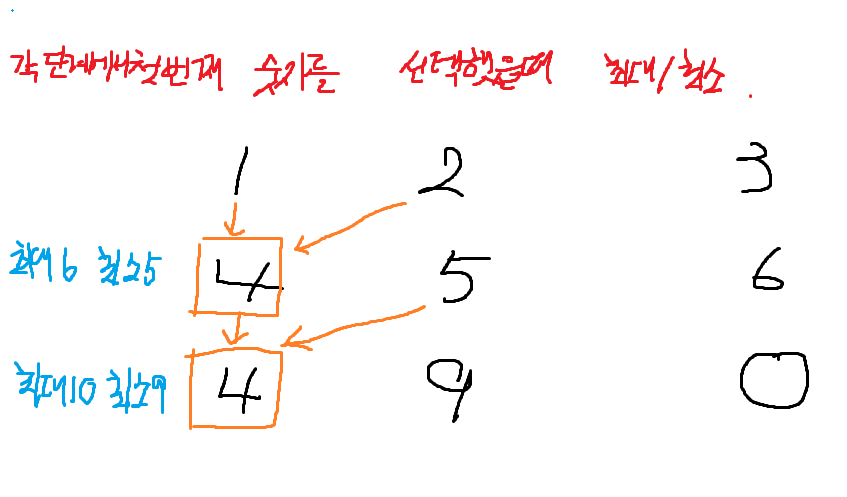 각 단계에서 첫번째 숫자를 선택했을때 최대/최소.
1 2 3
최대6 최소5 4 5 6
최대10 최소9 4 9 0